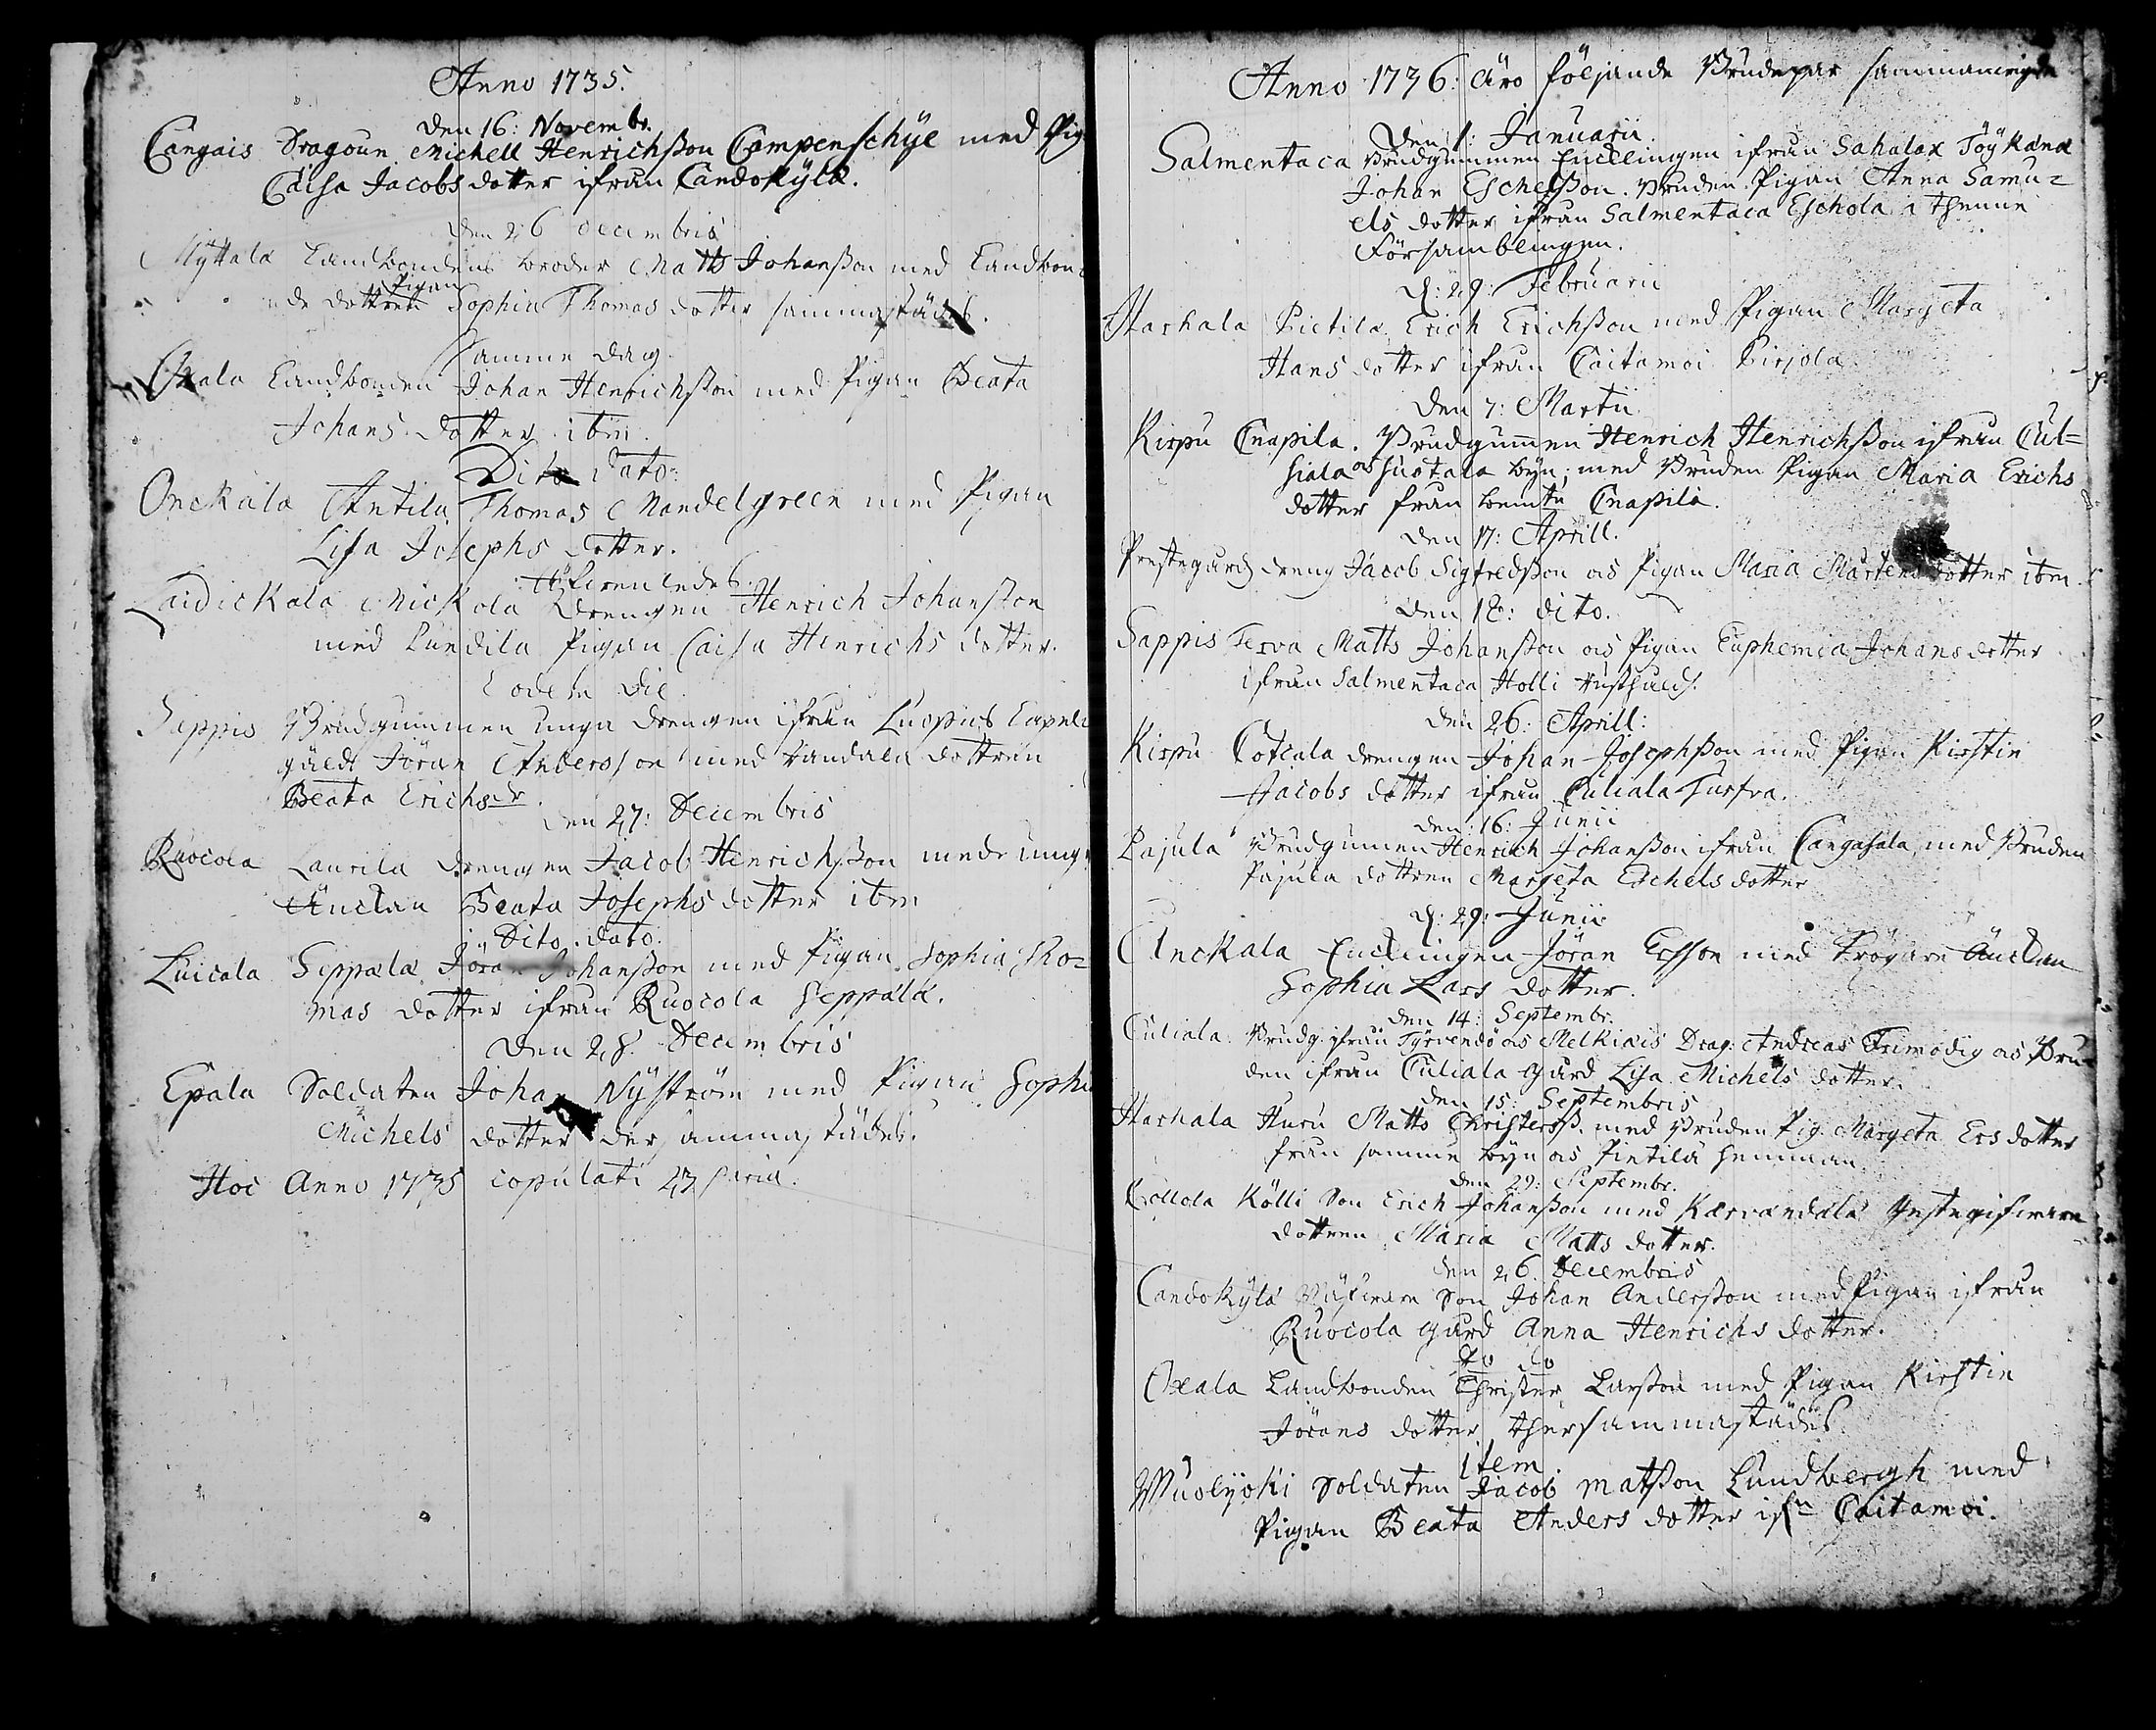 Anno 1735.
Den 16: Novembr.
Cangais Dragoun Michell Henrichsson Campenschÿe med Pig
Caisa Jacobs dotter ifrån Candokÿlä.
Den 26 Decembris
Mÿttälä Landbondens broder Matts Johansson med Landbon-
Pigan
de dottren Sophia Thomas dotter sammastädes.
Samme dag
Oxala Landbonden Johan Henrichsson med Pigan Beata
Johans dotter ibm.
Dito Dato:
Onckala Antila Thomas Mandelgreen med Pigan
Lisa Josephs dotter.
Äfwenledes.
Laidickala Mickola drengen Henrich Johansson
med Pigan Caisa Henrichs dotter.
Eodem Die
Seppis Brudgummen unga drengen ifrån Luopiois Capell
gäldt Jöran Andersson med dottren
Beata Erichs dr.
Den 27: Decembris
Ruocola Laurila drengen Jacob Henrichsson med unga
Änckan Beata Josephs dotter ibm
Dito. dato.
Luicala Seppälä Jöran Johansson med Pigan Sophia Tho=
mas dotter ifrån Ruocola Seppälä.
Den 28. Decembris
Epala Soldaten Johan Nÿström med Pigan Sophia
Michels dotter dersammastädes.
Hoc Anno 1735 copulati 27 paria.
Anno 1736. äro följande Brudepar sammanwigde
Den 1: Januarii
Salmentaca Brudgummen Enklingen ifrån Sahalax Töÿkänä
Johan Eschelsson. Bruden Pigan Anna Samu=
els dotter ifrån Salmentaca Eschola i thenne
Församblingen.
d: 29: Februarii
Harhala Pietilä Erich Erichsson med Pigan Margeta
Hans dotter ifrån Caitamoi Pirjola
Den 7: Martii
Kirpu Cnapila. Brudgummen Henrich Henrichsson ifrån Cul=
siala och Suotala bÿn, med Bruden Pigan Maria Erichs
dotter från bemte Cnapila.
Den 17: Aprill.
Prestegårdz dreng Jacob Sigfredsson och Pigan Maria Mårtens dotter ibm.
Den 18: dito.
Sappis Terva Matts Johansson och Pigan Euphemia Johans dotter
ifrån Salmentaca Holli Rusthåld.
Den 26: Aprill:
Kirpu Cotcala drengen Johan Josephsson med Pigan Kirstin
Jacobs dotter ifrån Culiala
Den: 16: Junii
Pajula Brudgummen Henrich Johansson ifrån Cangasala, med Bruden
Pajula dottren Margeta Eschels dotter
d: 29: Junii
Anckala Encklingen Jöran Ersson med Änckan
Sophia Lars dotter.
Den 14: Septembr.
Culiala Brudg. ifrån Tÿrvendö och Melkiäis Drag. Andreas Frimodig och Bru-
den ifrån Culiala gård Lisa Michels dotter.
Den 15: Septembris
Harhala Huru Matts Christerss. med Bruden Pig. Margeta Ers dotter
från samme bÿn och Pietilä hemman
Den 29: Septembr.
Collola Kölli Son Erich Johansson med Kärvändälä Gestegifware
dottren Maria Matts dotter.
Den 26. Decembris
Candokÿlä Son Johan Andersson med Pigan ifrån
Ruocola gård Anna Henrichs dotter.
do do
Oxala Landbonden Christer Larsson med Pigan Kirstin
Jörans dotter thersammastädes
Item
Wuolÿoki Soldaten Jacob Matsson Lundbergh med
Pigan Beata Anders dotter ifn Caitamoi.